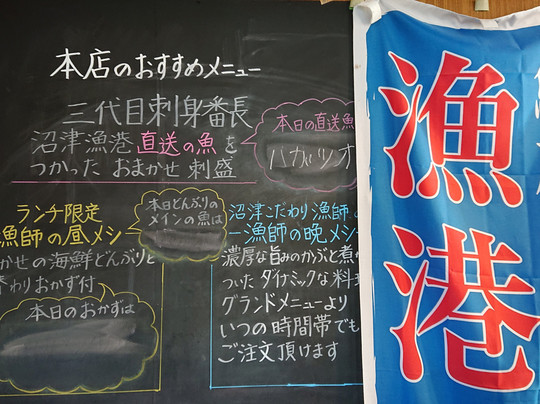 本店のおすすめメニュー
三代目刺身番長
沼津漁港直送の魚を
つかった おまかせ 刺盛
本日の直送魚
ハガツオ
ランチ限定
漁師の昼メシ
かせの海鮮どんぶりと
替わりおかず付
本日どんぶりの
メインの魚は
本日のおかずは
沼津こだわり漁師の
ー漁師の晩メシー
濃厚な旨みのかぶと煮が
ついた ダイナミックな料理
グランドメニューより
いつの時間帯でも
ご注文頂けます
漁港